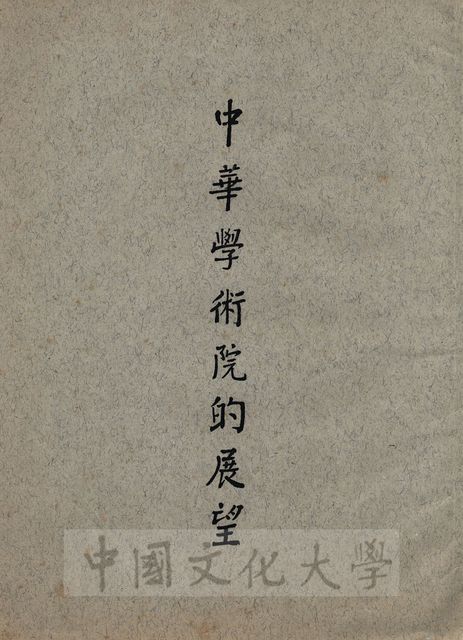 中華學術院的展望
中國文化大學